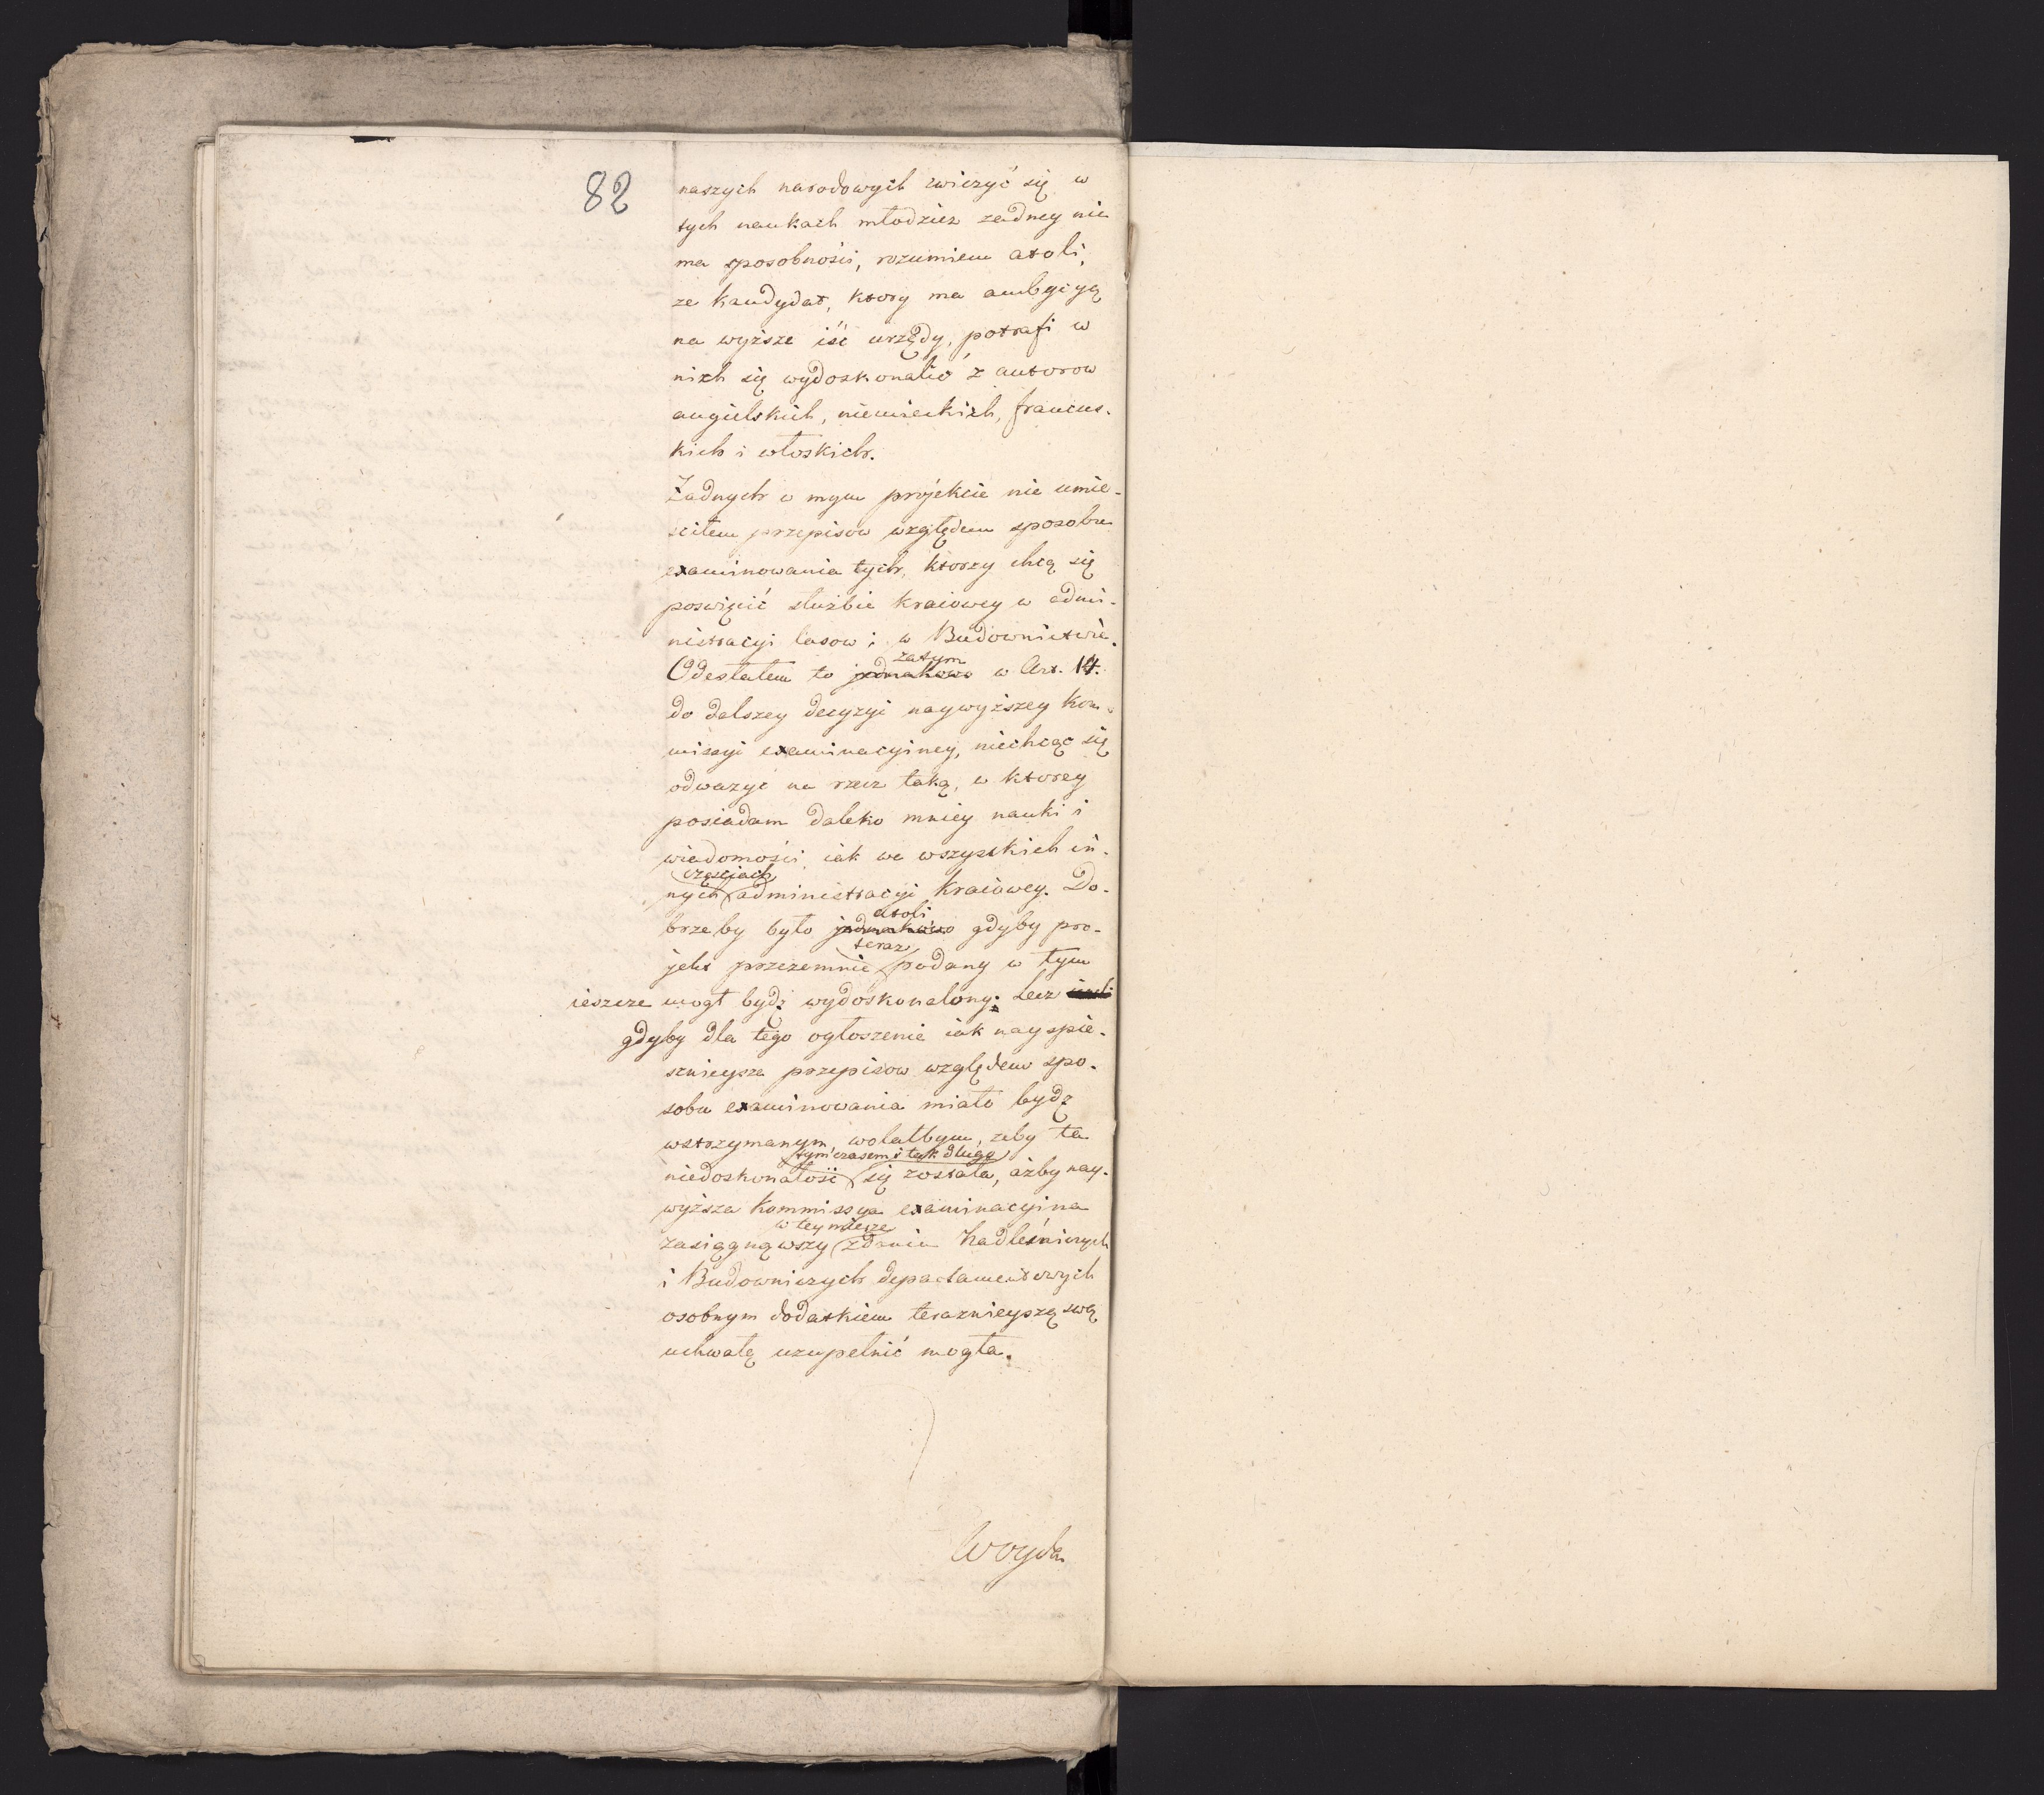 82
naszych narodowych cwiczyć się w
tych naukach młodziez zadney nie
ma sposobności, rozumiem atoli,
ze kandydat, ktory ma ambycyą
na wyzsze iść urzędy, potrafi w
nich się wydoskonalić z autorow
angielskich, niemieckich, francus-
kich i włoskich.
Żadnych w mym projekcie nie umie-
sciłem przepisow względem sposobu
examinowania tych, ktorzy chcą się
poswięcić służbie kraiowey w admi-
nistracyi lasow i w Budownictwie.
zatym
Odesłałem to jednakowo w Art. 14.
do dalszey decyzyi naywyższey Kom-
missyi examinacyiney, niechcąc się
odwazyć na rzecz taką, w ktorey
posiadam daleko mniey nauki i
wiadomości iak we wszystkich in-
częściach
nych administracyi kraiowey. Do-
atoli
brze by było jednakowo gdyby pro-
teraz
jekt przezemnie podany w tym
ieszcze mogł bydź wydoskonalony; Lecz
gdyby dla tego ogłoszenie iak nayspie-
sznieysze przepisow względem spo-
sobu examinowania miało bydź
wstrzymanym, wolałbym, zeby ta
tymczasem i tak długo
niedoskonałość się została, ażby nay-
wyższa Kommissya examinacyina
w tey mierze
zasiągnąwszy zdania Nadleśniczych
i Budowniczych departamentowych
osobnym dodatkiem teraznieyszą swą
uchwałę uzupełnić mogła.
Woyda